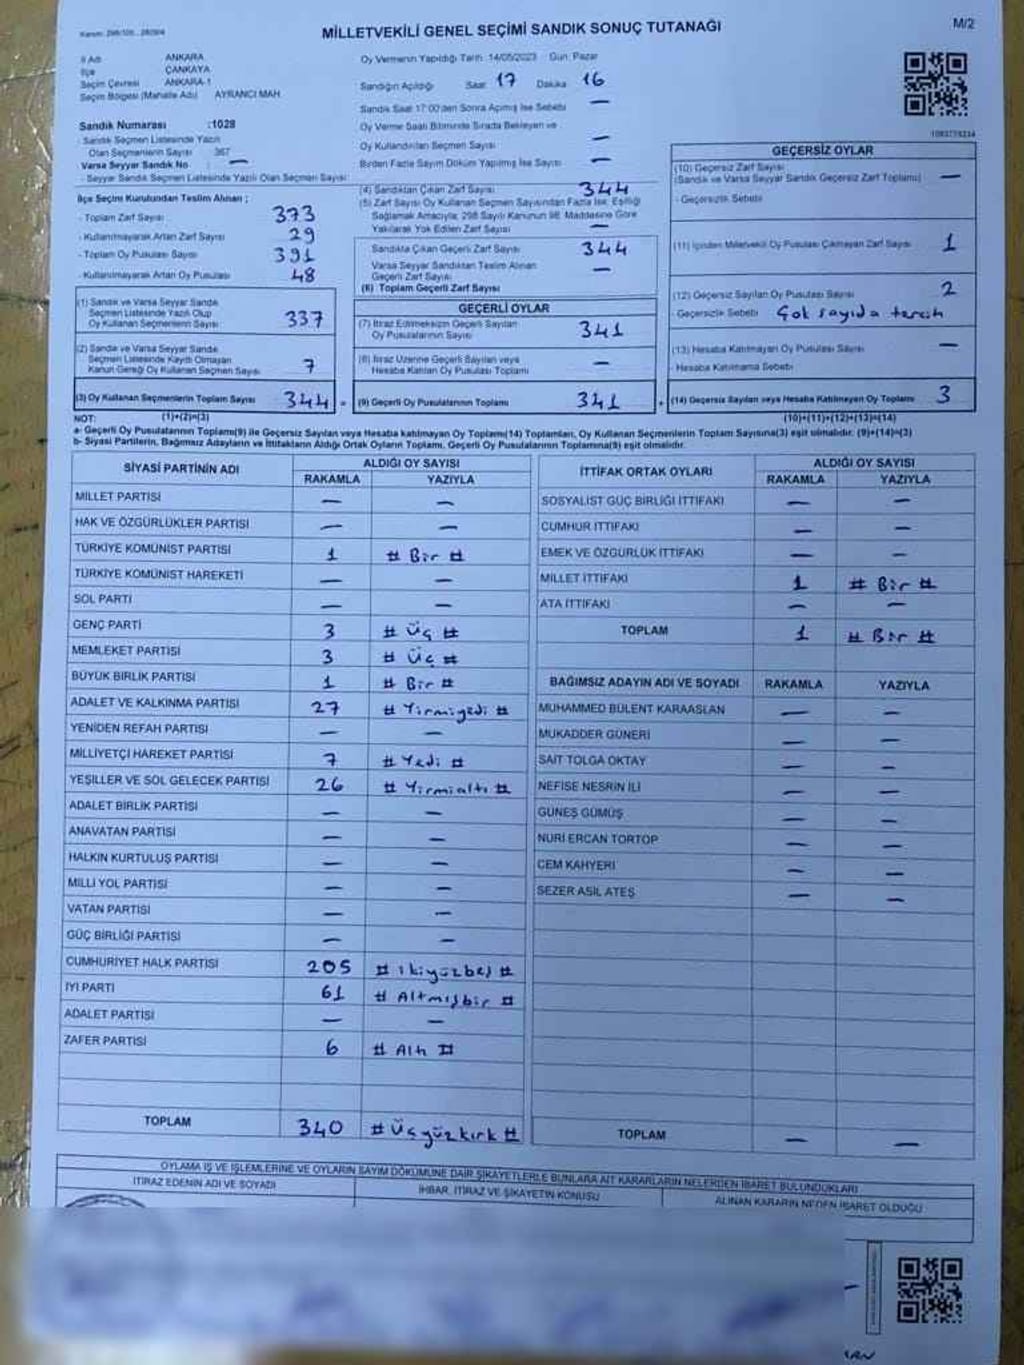 MİLLETVEKİLİ GENEL SEÇİMİ SANDIK SONUÇ TUTANAĞI
M/2
İl Adı ANKARA
İlçe ÇANKAYA
Seçim Çevresi ANKARA-1
Seçim Bölgesi (Mahalle Adı) AYRANCI MAH
Sandık Numarası :1028
Sandık Seçmen Listesinde Yazılı
Olan Seçmenlerin Sayısı 367
Varsa Seyyar Sandık No : —
- Seyyar Sandık Seçmen Listesinde Yazılı Olan Seçmen Sayısı
İlçe Seçim Kurulundan Teslim Alınan ;
- Toplam Zarf Sayısı 373
- Kullanılmayarak Artan Zarf Sayısı 29
- Toplam Oy Pusulası Sayısı 391
- Kullanılmayarak Artan Oy Pusulası 48
(1) Sandık ve Varsa Seyyar Sandık
Seçmen Listesinde Yazılı Olup
Oy Kullanan Seçmenlerin Sayısı 337
(2) Sandık ve Varsa Seyyar Sandık
Seçmen Listesinde Kayıtlı Olmayan
Kanun Gereği Oy Kullanan Seçmen Sayısı 7
(3) Oy Kullanan Seçmenlerin Toplam Sayısı 344 =
(1)+(2)=(3)
Oy Vermenin Yapıldığı Tarih: 14/05/2023 Gün: Pazar
Sandığın Açıldığı Saat 17 Dakika 16
Sandık Saat 17:00'den Sonra Açılmış İse Sebebi —
Oy Verme Saati Bitiminde Sırada Bekleyen ve
Oy Kullandırılan Seçmen Sayısı —
Birden Fazla Sayım Döküm Yapılmış İse Sayısı —
(4) Sandıktan Çıkan Zarf Sayısı 344
(5) Zarf Sayısı Oy Kullanan Seçmen Sayısından Fazla İse, Eşitliği
Sağlamak Amacıyla; 298 Sayılı Kanunun 98. Maddesine Göre
Yakılarak Yok Edilen Zarf Sayısı —
Sandıkta Çıkan Geçerli Zarf Sayısı 344
Varsa Seyyar Sandıktan Teslim Alınan
Geçerli Zarf Sayısı —
(6) Toplam Geçerli Zarf Sayısı
GEÇERLİ OYLAR
(7) İtiraz Edilmeksizin Geçerli Sayılan
Oy Pusulalarının Sayısı 341
(8) İtiraz Üzerine Geçerli Sayılan veya
Hesaba Katılan Oy Pusulası Toplamı —
(9) Geçerli Oy Pusulalarının Toplamı 341 +
GEÇERSİZ OYLAR
(10) Geçersiz Zarf Sayısı
(Sandık ve Varsa Seyyar Sandık Geçersiz Zarf Toplamı) —
- Geçersizlik Sebebi
(11) İçinden Milletvekili Oy Pusulası Çıkmayan Zarf Sayısı 1
(12) Geçersiz Sayılan Oy Pusulası Sayısı 2
- Geçersizlik Sebebi Çok sayıda tercih
(13) Hesaba Katılmayan Oy Pusulası Sayısı —
- Hesaba Katılmama Sebebi
(14) Geçersiz Sayılan veya Hesaba Katılmayan Oy Toplamı 3
(10)+(11)+(12)+(13)=(14)
NOT:
a- Geçerli Oy Pusulalarının Toplamı(9) ile Geçersiz Sayılan veya Hesaba katılmayan Oy Toplamı(14) Toplamları, Oy Kullanan Seçmenlerin Toplam Sayısına(3) eşit olmalıdır. (9)+(14)=(3)
b- Siyasi Partilerin, Bağımsız Adayların ve İttifakların Aldığı Ortak Oyların Toplamı, Geçerli Oy Pusulalarının Toplamına(9) eşit olmalıdır.
SİYASİ PARTİNİN ADI ALDIĞI OY SAYISI
RAKAMLA YAZIYLA
MİLLET PARTİSİ — —
HAK VE ÖZGÜRLÜKLER PARTİSİ — —
TÜRKİYE KOMÜNİST PARTİSİ 1 # Bir #
TÜRKİYE KOMÜNİST HAREKETİ — —
SOL PARTİ — —
GENÇ PARTİ 3 # Üç #
MEMLEKET PARTİSİ 3 # Üç #
BÜYÜK BİRLİK PARTİSİ 1 # Bir #
ADALET VE KALKINMA PARTİSİ 27 # Yirmiyedi #
YENİDEN REFAH PARTİSİ — —
MİLLİYETÇİ HAREKET PARTİSİ 7 # Yedi #
YEŞİLLER VE SOL GELECEK PARTİSİ 26 # Yirmialtı #
ADALET BİRLİK PARTİSİ — —
ANAVATAN PARTİSİ — —
HALKIN KURTULUŞ PARTİSİ — —
MİLLİ YOL PARTİSİ — —
VATAN PARTİSİ — —
GÜÇ BİRLİĞİ PARTİSİ — —
CUMHURİYET HALK PARTİSİ 205 # ikiyüzbeş #
İYİ PARTİ 61 # Altmışbir #
ADALET PARTİSİ — —
ZAFER PARTİSİ 6 # Altı #
TOPLAM 340 # Üçyüzkırk #
İTTİFAK ORTAK OYLARI ALDIĞI OY SAYISI
RAKAMLA YAZIYLA
SOSYALİST GÜÇ BİRLİĞİ İTTİFAKI — —
CUMHUR İTTİFAKI — —
EMEK VE ÖZGÜRLÜK İTTİFAKI — —
MİLLET İTTİFAKI 1 # Bir #
ATA İTTİFAKI — —
TOPLAM 1 # Bir #
BAĞIMSIZ ADAYIN ADI VE SOYADI RAKAMLA YAZIYLA
MUHAMMED BÜLENT KARAASLAN — —
MUKADDER GÜNERİ — —
SAİT TOLGA OKTAY — —
NEFİSE NESRİN İLİ — —
GÜNEŞ GÜMÜŞ — —
NURİ ERCAN TORTOP — —
CEM KAHYERİ — —
SEZER ASİL ATEŞ — —
TOPLAM — —
OYLAMA İŞ VE İŞLEMLERİNE VE OYLARIN SAYIM DÖKÜMÜNE DAİR ŞİKAYETLERLE BUNLARA AİT KARARLARIN NELERDEN İBARET BULUNDUKLARI
İTİRAZ EDENİN ADI VE SOYADI İHBAR, İTİRAZ VE ŞİKAYETİN KONUSU ALINAN KARARIN NEDEN İBARET OLDUĞU